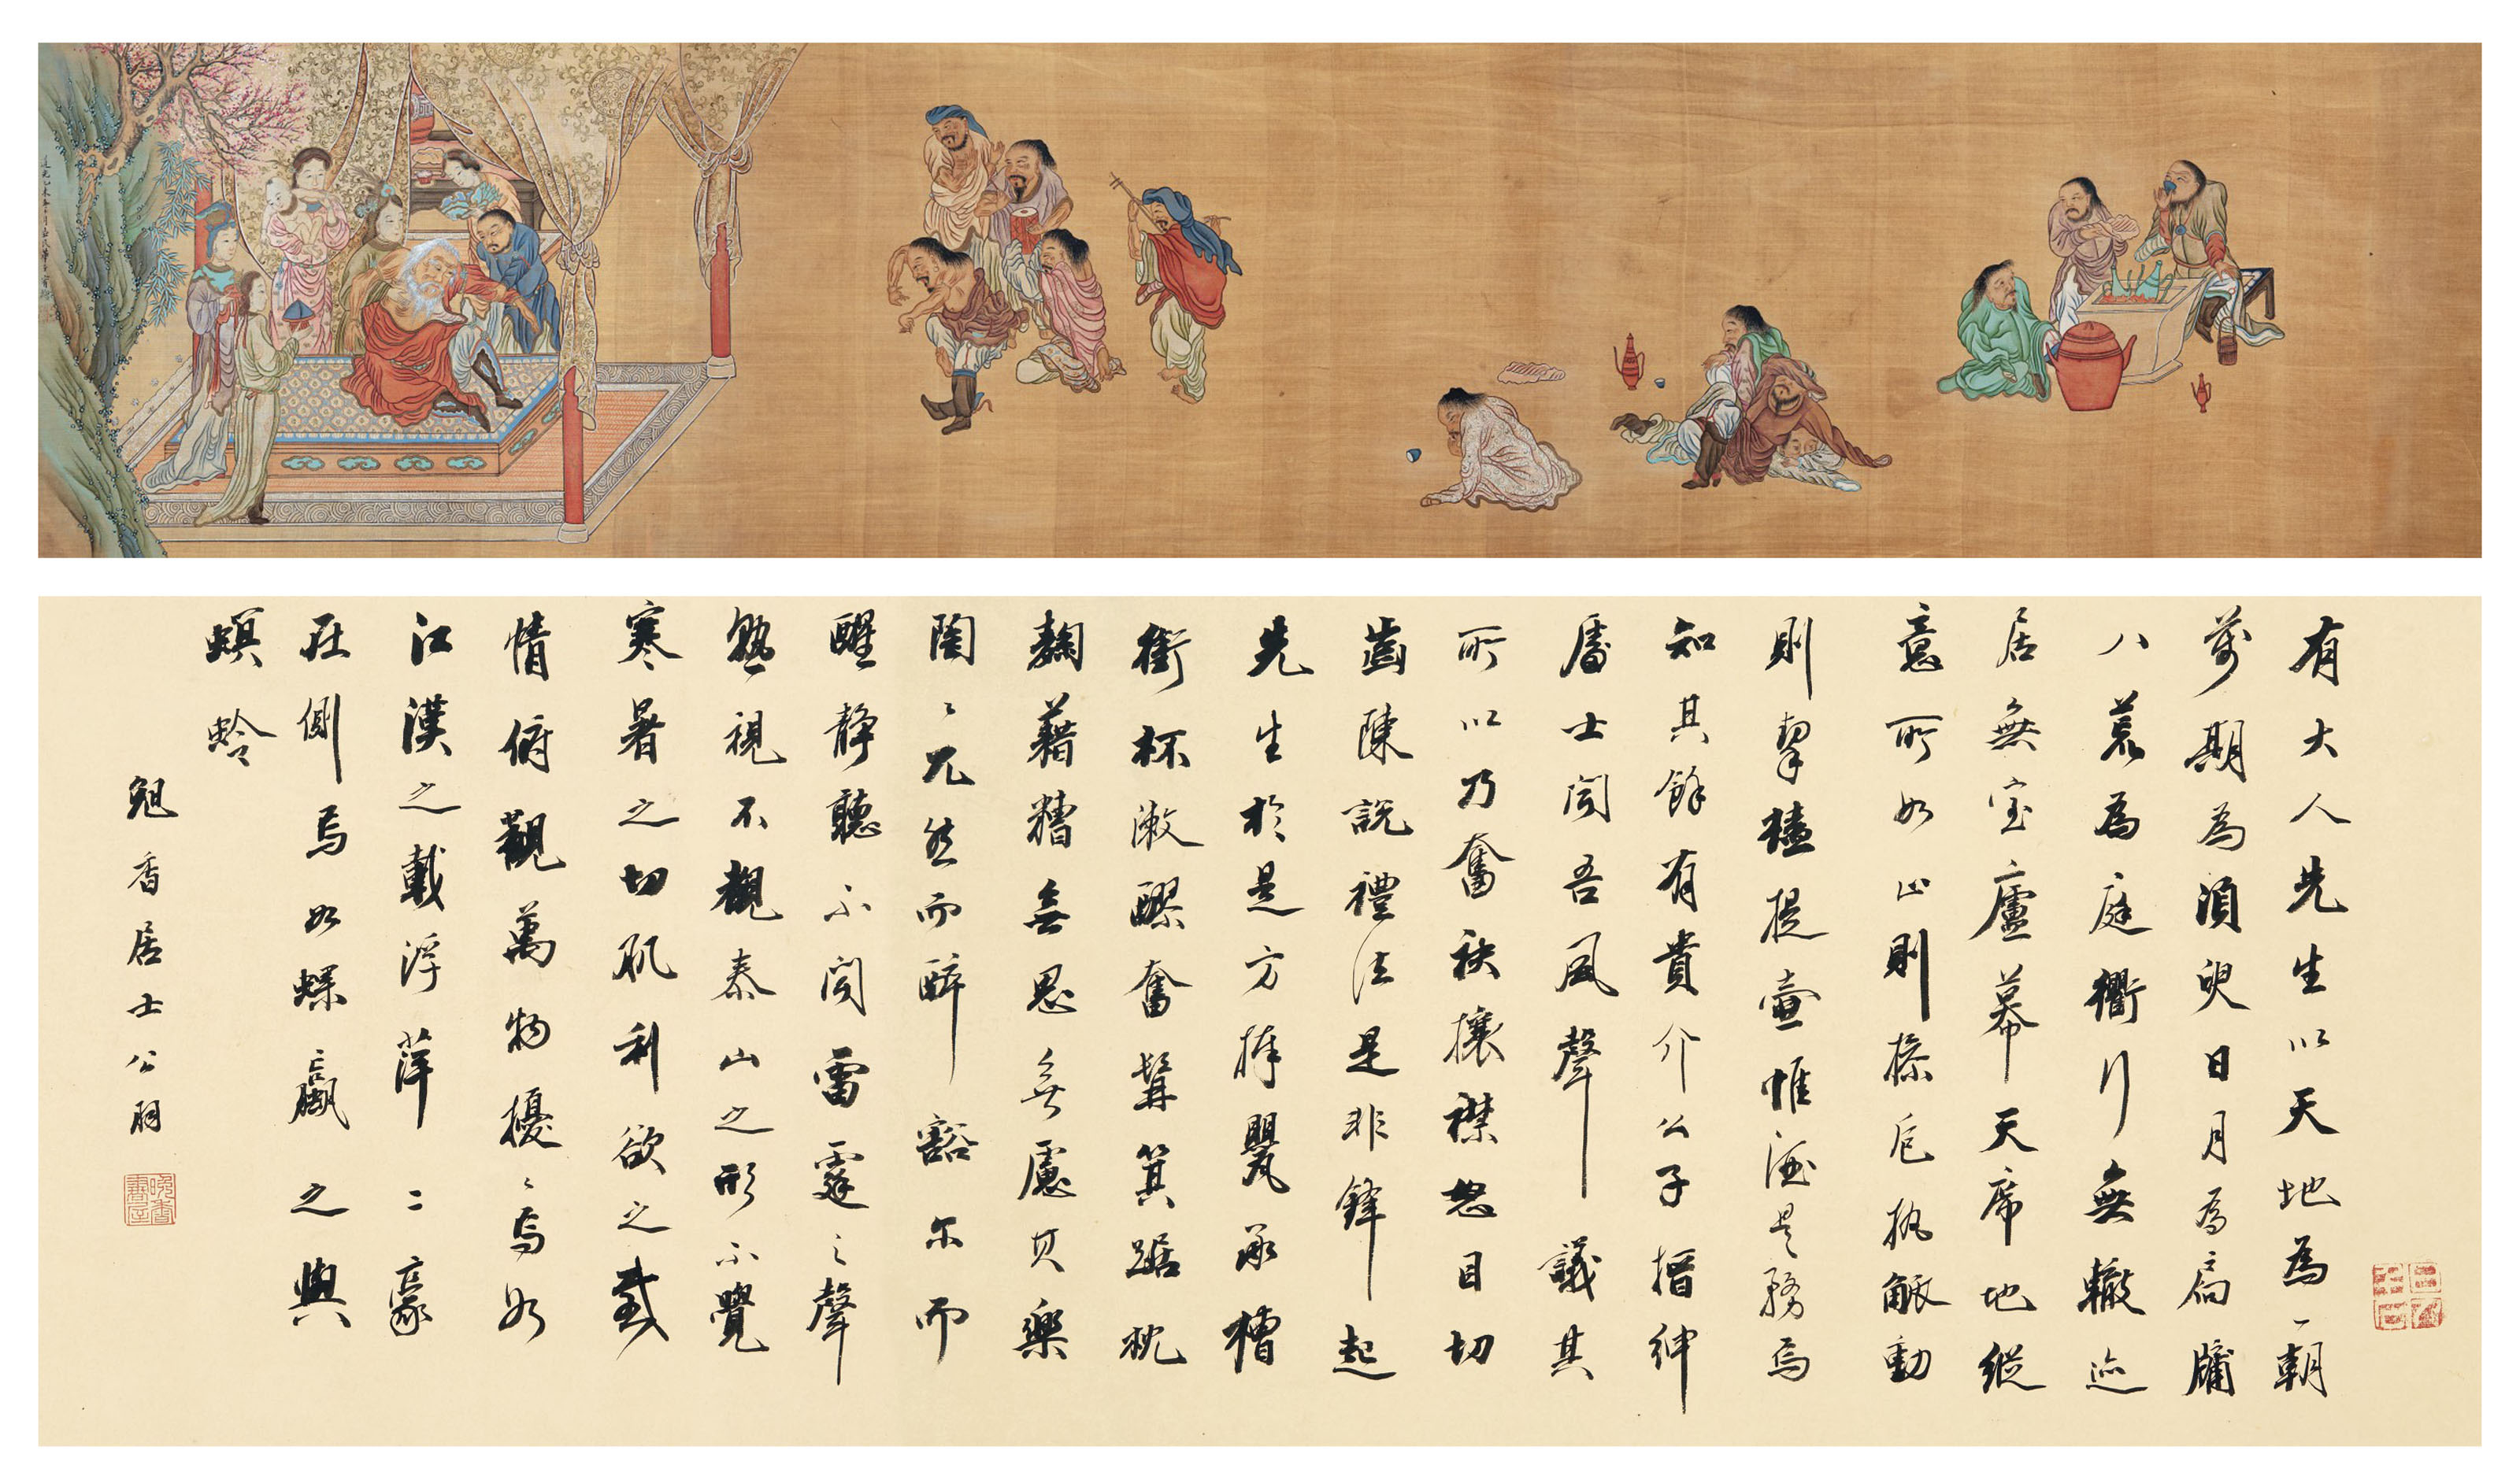 有大人先生以天地為一朝
萬期為須臾日月為扃牖
八荒為庭衢行無轍迹
居無室廬幕天席地縱
意所如止則操卮執觚動
則挈榼提壺惟酒是務焉
知其餘有貴介公子搢紳
處士聞吾風聲議其
所以乃奮袂攘襟怒目切
齒陳說禮法是非鋒起
先生於是方捧罌承槽
銜杯漱醪奮髯箕踞枕
麴藉糟無思無慮其樂
陶〻兀然而醉豁尔而
醒靜聽不聞雷霆之聲
熟視不覩泰山之形不覺
寒暑之切肌利欲之感
情俯觀萬物擾〻焉如
江漢之載浮萍二豪
在側焉如蜾蠃之與
螟蛉
香居士公
晚香書屋